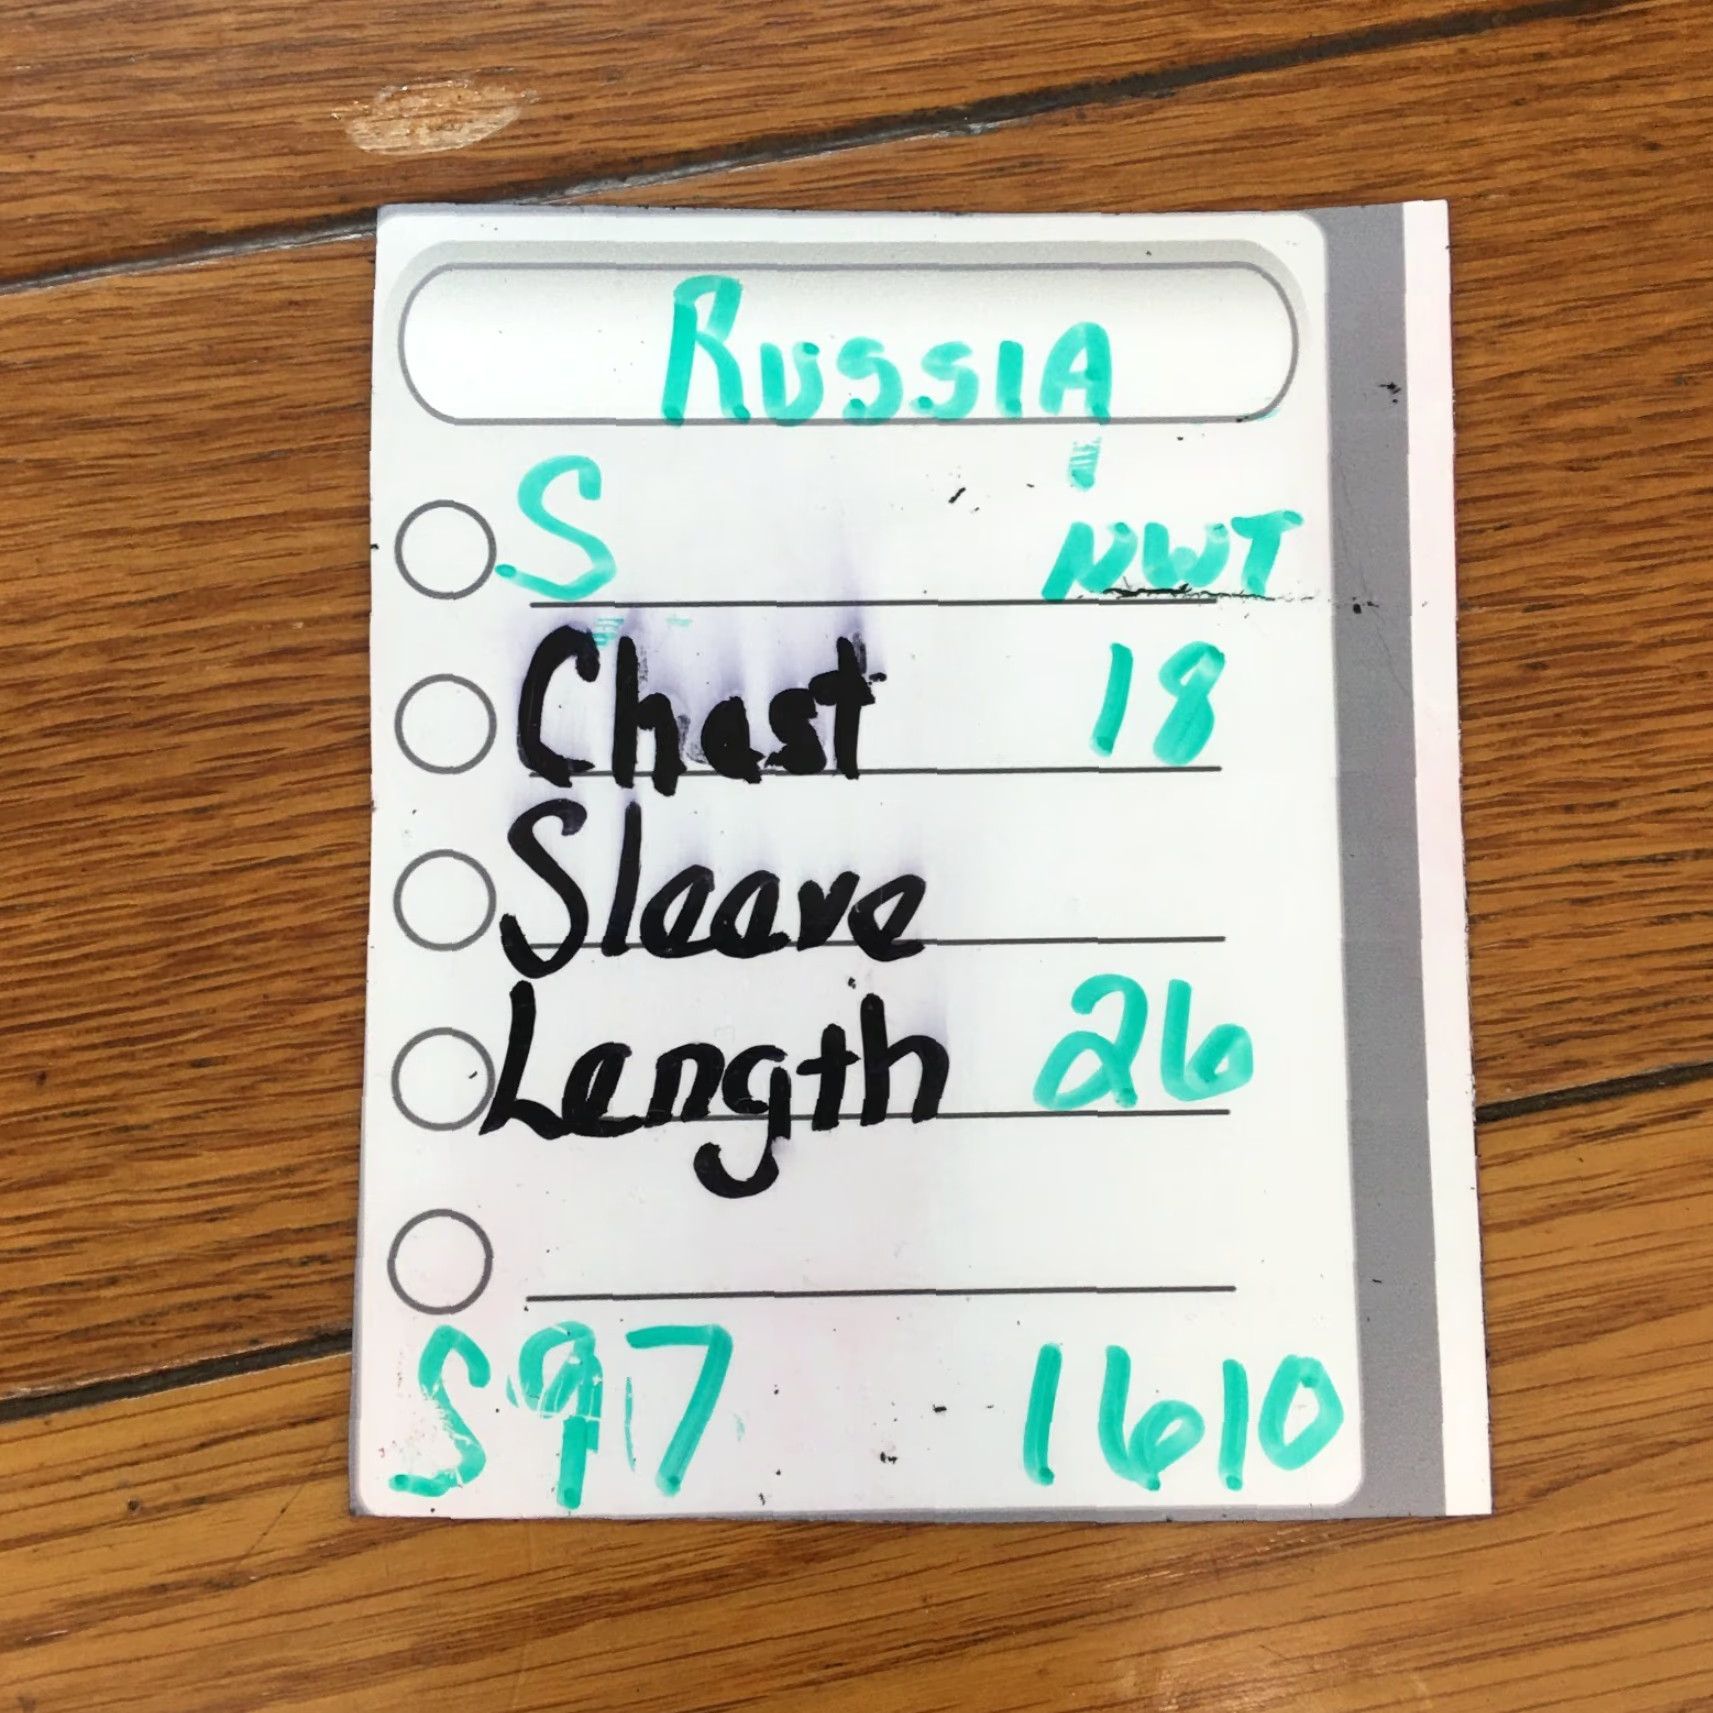 RUSSIA
S NWT
Chest 18
Sleeve
Length 26
S97 1610